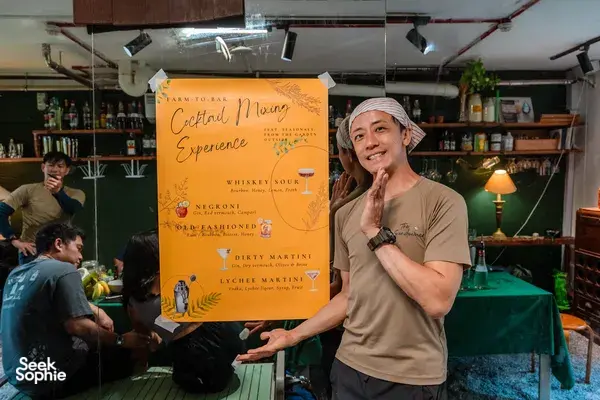 FARM-TO-BAR
Cocktail Mixing
Experience
WHISKEY SOUR
Bourbon, Honey, Lemon,
NEGRONI
Gin, Red vermouth, Campari
OLD FASHIONED
DIRTY MARTINI
Gin, Dry vermouth, Olives & Brine
LYCHEE MARTINI
Vodka, Lychee liquor, Syrup, Fruit
Seek
Sophie